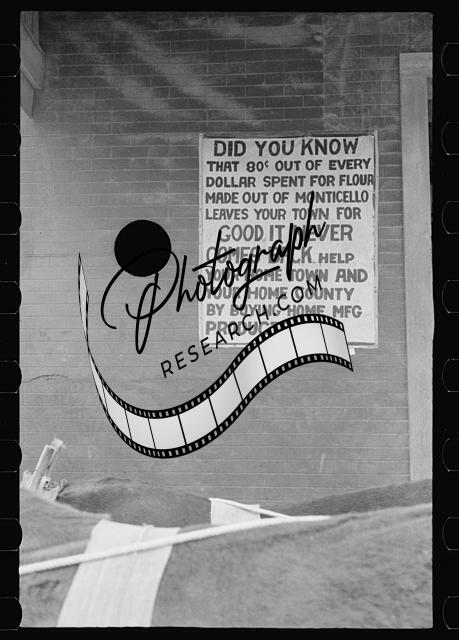 DID YOU KNOW
THAT 80¢ OUT OF EVERY
DOLLAR SPENT FOR FLOUR
MADE OUT OF MONTICELLO
LEAVES YOUR TOWN FOR
GOOD. IT
HELP
TOWN AND
HOME COUNTY
BY HOME MFG
Photograph
RESEARCH.COM